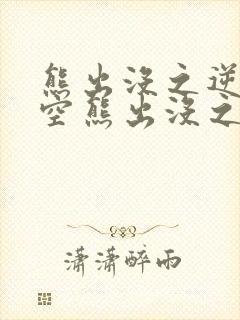 熊出没之逆
空熊出没之
潇潇醉雨